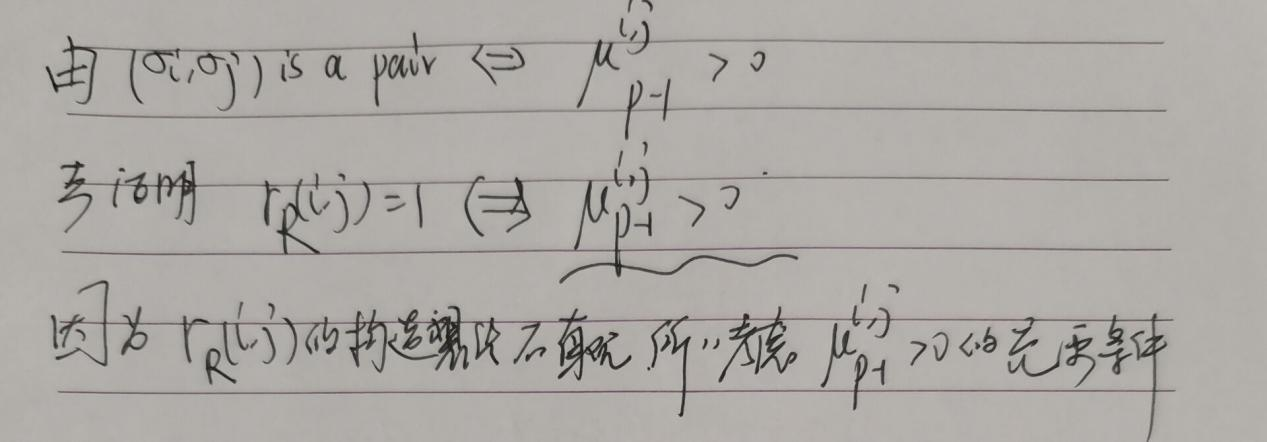 由 (σi,σj) is a pair ⇔ μ_{p-1}^{i,j} > 0
考证明 r_R(i,j)=1 ⇔ μ_{p-1}^{i,j} > 0
因为 r_R(i,j)的构造 不直观 所以考虑 μ_{p-1}^{i,j} >0的充要条件